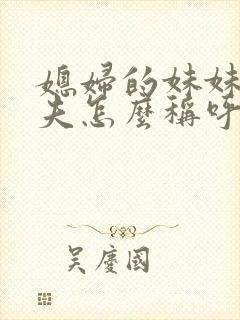 媳婦的妹妹
夫怎麼稱呼
吳慶國